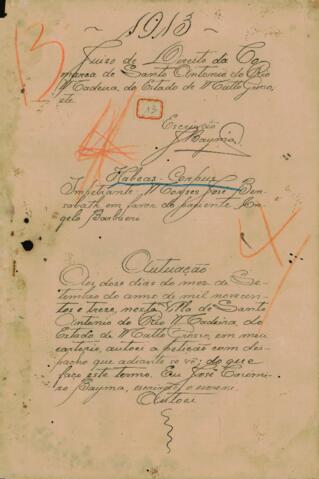 1913
Juiso de Direito da Co
marca de Santo Antonio do Rio
Madeira, do Estado de Matto Gros
so
13
Escrivão
J Bayma
Habeas-Corpus
Impetrante, Moyses José Ben
sabath em favor do paciente An
gelo Barbieri
Autuação
dose dias do mez de Se
tembro do anno de mil novecen
tos e treze, nesta Villa de Santo
Antonio do Rio Madeira, do
Estado de Matto Grosso, em meu
cartorio, autoei a petição com des
pacho que adiante se vê; do que
faço este termo. Eu José
Bayma, escrivão o escrevi.
Autoei